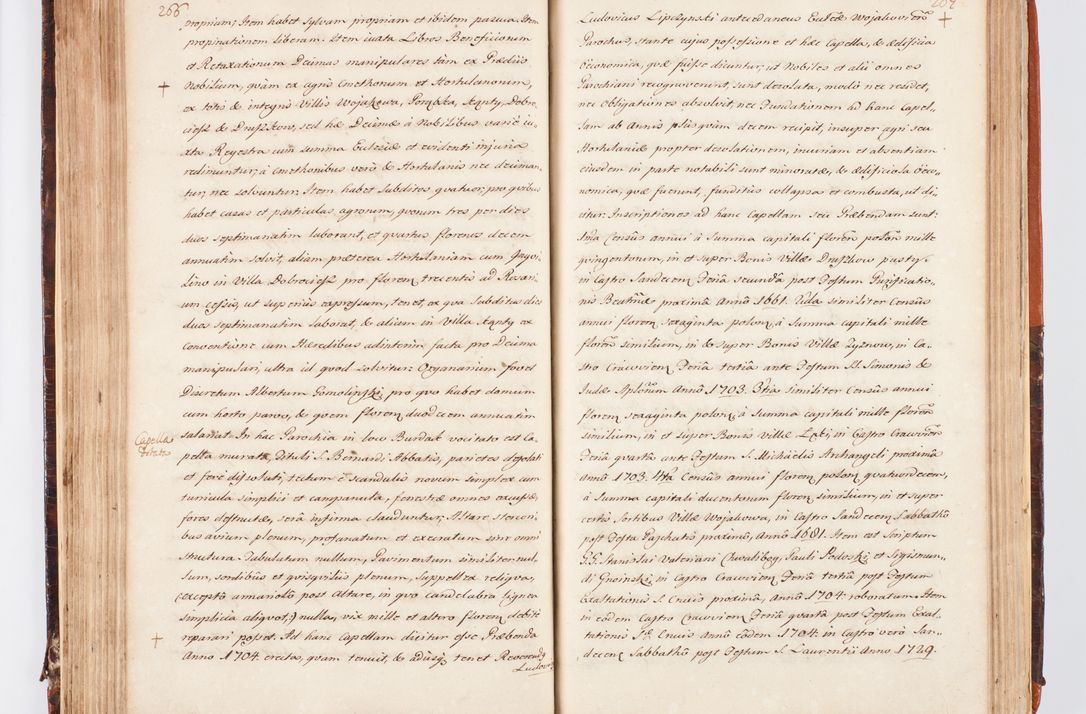 266
propriam; Item habet sylvam propriam et ibidem pascua. Item
propinationem liberam. Item iuxta Libros Beneficiorum
et Retaxationum Decimas manipulares tàm ex Prædiis
Nobilium, quàm ex agris Cmethonum et Hortulanorum,
ex totis & integris Villis Wojakowa, Porąbka, Kąnty, Dobro„
cieſz & Druſzkow, sed hæ Decimæ à Nobilibus variè iu„
xta Regestra cum summa Ecclesiæ et evidenti injuria
redimuntur; à Cmethonibus verò & Hortulanis nec deciman„
tur, nec solvuntur. Item habet Subditos quatuor, pro quibus
habet casas et particulas agrorum, quorum tres per dies
duos septimanatim laborant, et quartus florenos decem
annuatim solvit, aliam præterea Hortulaniam cum
in Villa Dobrocieſz pro floren trecentis ad Rosari„
um cessis, ut superius expressum, tenet, ex qua Subditus dies
duos septimanatim laborat, & aliam in Villa Kąnty ex
Conventione cum Hæredibus adinterim facta pro Decima
manipulari, ultra id quod solvitur. Organarium fovet
Discretum Albertum Gomolinſki, pro quo habet domum
cum horto parvo, & quem floren duodecem annuatim
salariat. In hac Parochia in loco Burdak vocitato est Ca„
Capella
pella murata, Tituli S. Bernardi Abbatis, parietes desolati
et ferè dissoluti, tectum è scandulis novum simplex cum
turricula simplici et campanula, fenestræ omnes excussæ,
fores destructæ, serâ infirma clauduntur; Altare stercori„
bus avium plenum, profanatum et execratum sine omni
structura. Tabulatum nullum, Pavimentum similiter nul„
lum, sordibus et quisquiliis plenum, Suppellex reliqua,
(exceptâ amariolâ post Altare, in quo candelabra lignea
simplicia aliquot,) nulla, vix mille et altero floren debitè
reparari posset. Ad hanc Capellam dicitur esse Præbenda
Anno 1704 erecta, quam tenuit, & adusq tenet Reverendg
Ludovi„
Ludovicus Lipczynski antecedaneus Ecclæ Wojakovien
Parochus, stante cujus possessione et hæc Capella, & ædificia
Oeconomica, quæ fuisse dicuntur, ut Nobiles et alii omnes
Parochiani recognoverunt, sunt desolata, modò nec residet,
nec obligationes absolvit, nec Fundationem ad hanc Capel„
lam ab Annis plusquam decem recipit, insuper agri seu
Hortulaniæ propter desolationem, incuriam et absentiam
ejusdem in parte notabili sunt minoratæ, & ædificiola Oeco„
nomica, quæ fuerunt, funditus collapsa et combusta, ut di„
citur. Inscriptiones ad hanc Capellam seu Præbendam sunt:
Ima Census annui à Summa capitali floren polon mille
quingentorum, in et super Bonis Villæ Druſzkow pusty,
in Castro Sandecen Feriâ secundâ post Festum Purificatio„
nis Beatmæ proximâ Annô 1661. 2da similiter Census
annui floren sexaginta polon, à Summa capitali mille
floren similium, in & super Bonis Villæ Zyznow, in Ca„
stro Cracovien Feriâ tertiâ ante Festum SS. Simonis &
Judæ Aplorum Annô 1703. 3tia similiter Census annui
floren sexaginta polon, à Summa capitali mille floren
similium, in et super Bonis Villæ Łęki, in Castro Cracovien
Feriâ quartâ ante Festum S. Michaëlis Archangeli proximâ
anno 1703. 4ta Census annui floren polon quatuordecem,
à Summa capitali ducentorum floren similium, in et super
certis sortibus Villæ Wojakowa, in Castro Sandecen Sabbathô
post Festa Paschatis proximô, Annô 1681. Item est Scriptum
GG. Stanislai Valeriani Chwalibog, Pauli Podoski et Sigismun„
di Gnoinski, in Castro Cracovien Feriâ tertiâ post Festum
Exaltationis S. Crucis proximâ, Annô 1704. roboratum. Item
in eodem Castro Cracovien Feriâ quartâ post Festum Exal„
tationis S. Crucis Annô eôdem 1704. in Castro verò San„
decen Sabbathô post Festum S. Laurentii Anno 1729.